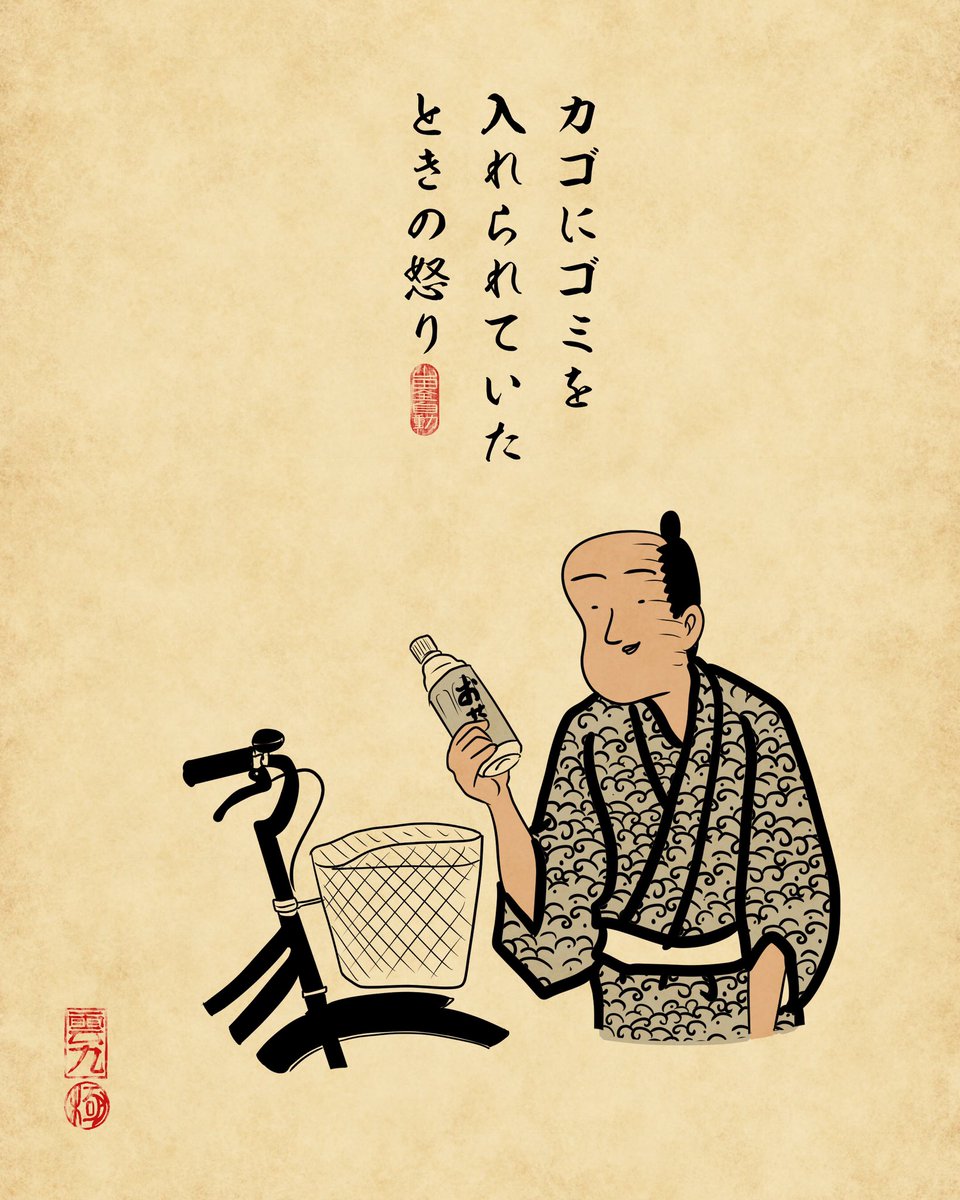 カゴにゴミを
入れられていた
ときの怒り
お茶
雲九
極